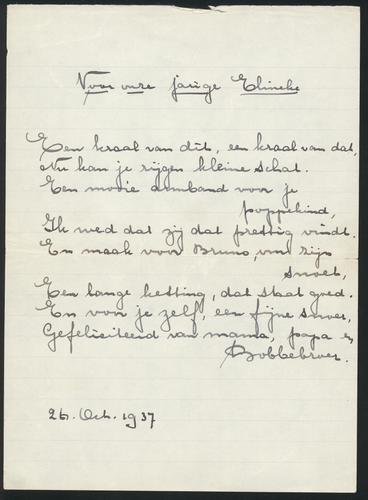 Voor onze jarige Elineke
Een kraal van dit, een kraal van dat,
Nu kan je rijgen kleine schat.
Een mooie armband voor je
poppekind,
Ik wed dat zij dat prettig vindt.
En maak voor Bruno, om zijn
snoet,
Een lange ketting, dat staat goed.
En voor je zelf, een fijne snoer,
Gefeliciteerd van mama, papa en
Bobbebroer.
26. Oct. 1937